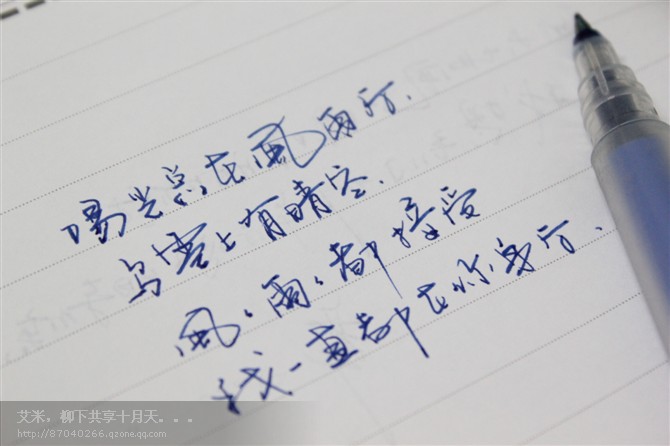 陽光总在風雨后.
乌雲上有晴空.
風々雨々都接受
我一直都在你身后.
艾米，柳下共享十月天。。。
http://87040266.qzone.qq.com